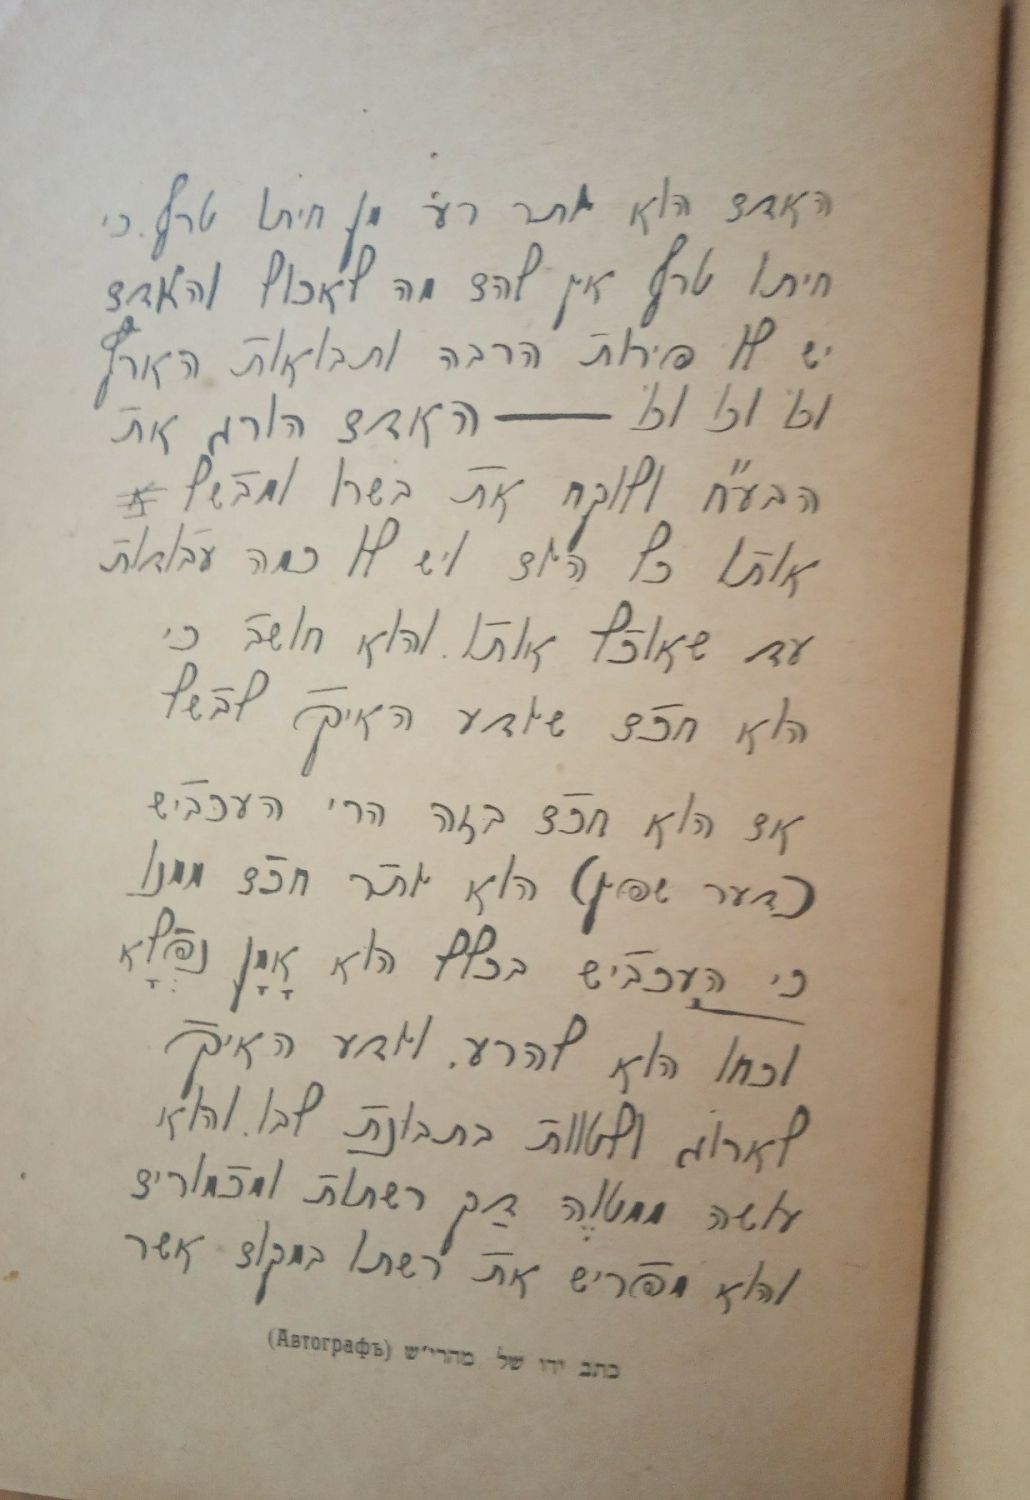 האדם הוא יותר רע מן חיתו טרף. כי
חיתו טרף אין להם מה לאכול והאדם
יש לו פירות הרבה ותבואות הארץ
וכו׳ וכו׳ וכו׳ — האדם הורג את
הבע״ח ולוקח את בשרו ומבשל
אותו כל היום ויש לו כמה עבודות
עד שאוכל אותו. והוא חושב כי
הוא חכם שיודע האיך לבשל
אם הוא חכם בזה הרי העכביש
(דער שפין) הוא יותר חכם ממנו
כי העכביש בכלל הוא אָמָן נִפְלָא
וכחו הוא להרע. ויודע האיך
לארוג ולטוות בתבונת לבו. והוא
עושה ממטוֶה דַק רשתות ומכמורים
והוא מפריש את רשתו במקום אשר
כתב ידו של מהרי״ש (Автографъ)